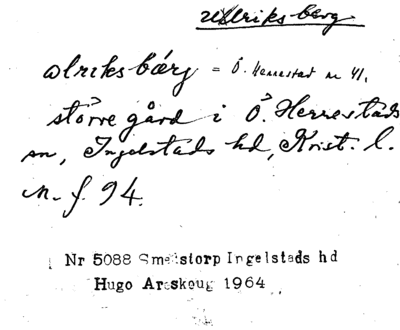 Ulriksberg
Ulriksbärg = Ö. Herrestad nr 41,
större gård i Ö. Herrestads
sn, Ingelstads hd, Krist. l.
M. f. 94.
Nr 5088 Smedstorp Ingelstads hd
Hugo Areskoug 1964